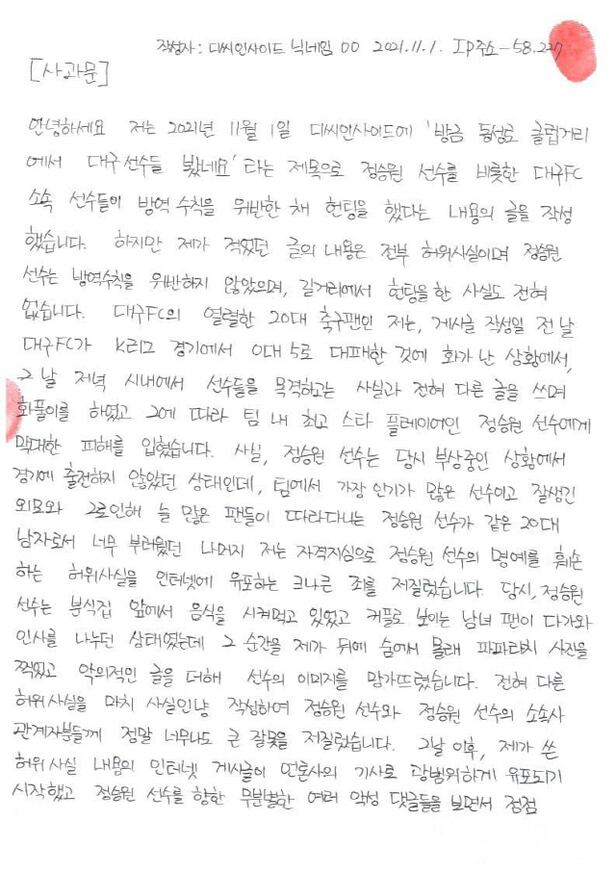 작성자 : 디씨인사이드 닉네임 00 2021.11.1. IP주소-58.227
[사과문]
안녕하세요 저는 2021년 11월 1일 디씨인사이드에 '방금 동성로 클럽거리
에서 대구선수들 봤네요' 라는 제목으로 정승원 선수를 비롯한 대구FC
소속 선수들이 방역수칙을 위반한 채 헌팅을 했다는 내용의 글을 작성
했습니다. 하지만 제가 적었던 글의 내용은 전부 허위사실이며 정승원
선수는 방역수칙을 위반하지 않았으며, 길거리에서 헌팅을 한 사실도 전혀
없습니다. 대구FC의 열렬한 20대 축구팬인 저는, 게시글 작성일 전날
대구FC가 K리그 경기에서 0대 5로 대패한 것에 화가 난 상황에서,
그 날 저녁 시내에서 선수들을 목격하고는 사실과 전혀 다른 글을 쓰며
화풀이를 하였고 그에 따라 팀 내 최고 스타 플레이어인 정승원 선수에게
막대한 피해를 입혔습니다. 사실, 정승원 선수는 당시 부상중인 상황에서
경기에 출전하지 않았던 상태인데, 팀에서 가장 인기가 많은 선수이고 잘생긴
외모와 그로인해 늘 많은 팬들이 따라다니는 정승원 선수가 같은 20대
남자로서 너무 부러웠던 나머지 저는 자격지심으로 정승원 선수의 명예를 훼손
하는 허위사실을 인터넷에 유포하는 크나큰 죄를 저질렀습니다. 당시, 정승원
선수는 분식집 앞에서 음식을 시켜먹고 있었고 커플로 보이는 남녀 팬이 다가와
인사를 나누던 상태였는데 그 순간을 제가 뒤에 숨어서 몰래 파파라치 사진을
찍었고 악의적인 글을 더해 선수의 이미지를 망가뜨렸습니다. 전혀 다른
허위사실을 마치 사실인냥 작성하여 정승원 선수와 정승원 선수의 소속사
관계자분들께 정말 너무나도 큰 잘못을 저질렀습니다. 그날 이후, 제가 쓴
허위사실 내용의 인터넷 게시글이 언론사의 기사로 광범위하게 유포되기
시작했고 정승원 선수를 향한 무분별한 여러 악성 댓글들을 보면서 점점